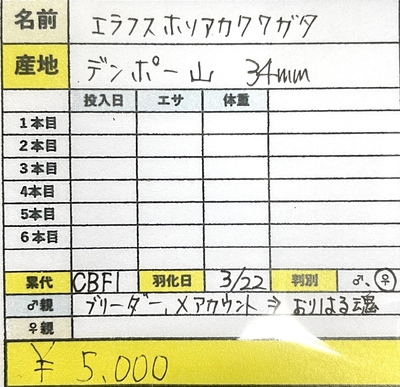 名前 エラフスホソアカクワガタ
産地 デンポー山 34mm
投入日 エサ 体重
1本目
2本目
3本目
4本目
5本目
6本目
累代 CBF1 羽化日 3/22 判別 ♂、♀
♂親 ブリーダー、Xアカウント⇒おりはる魂
♀親
¥5,000